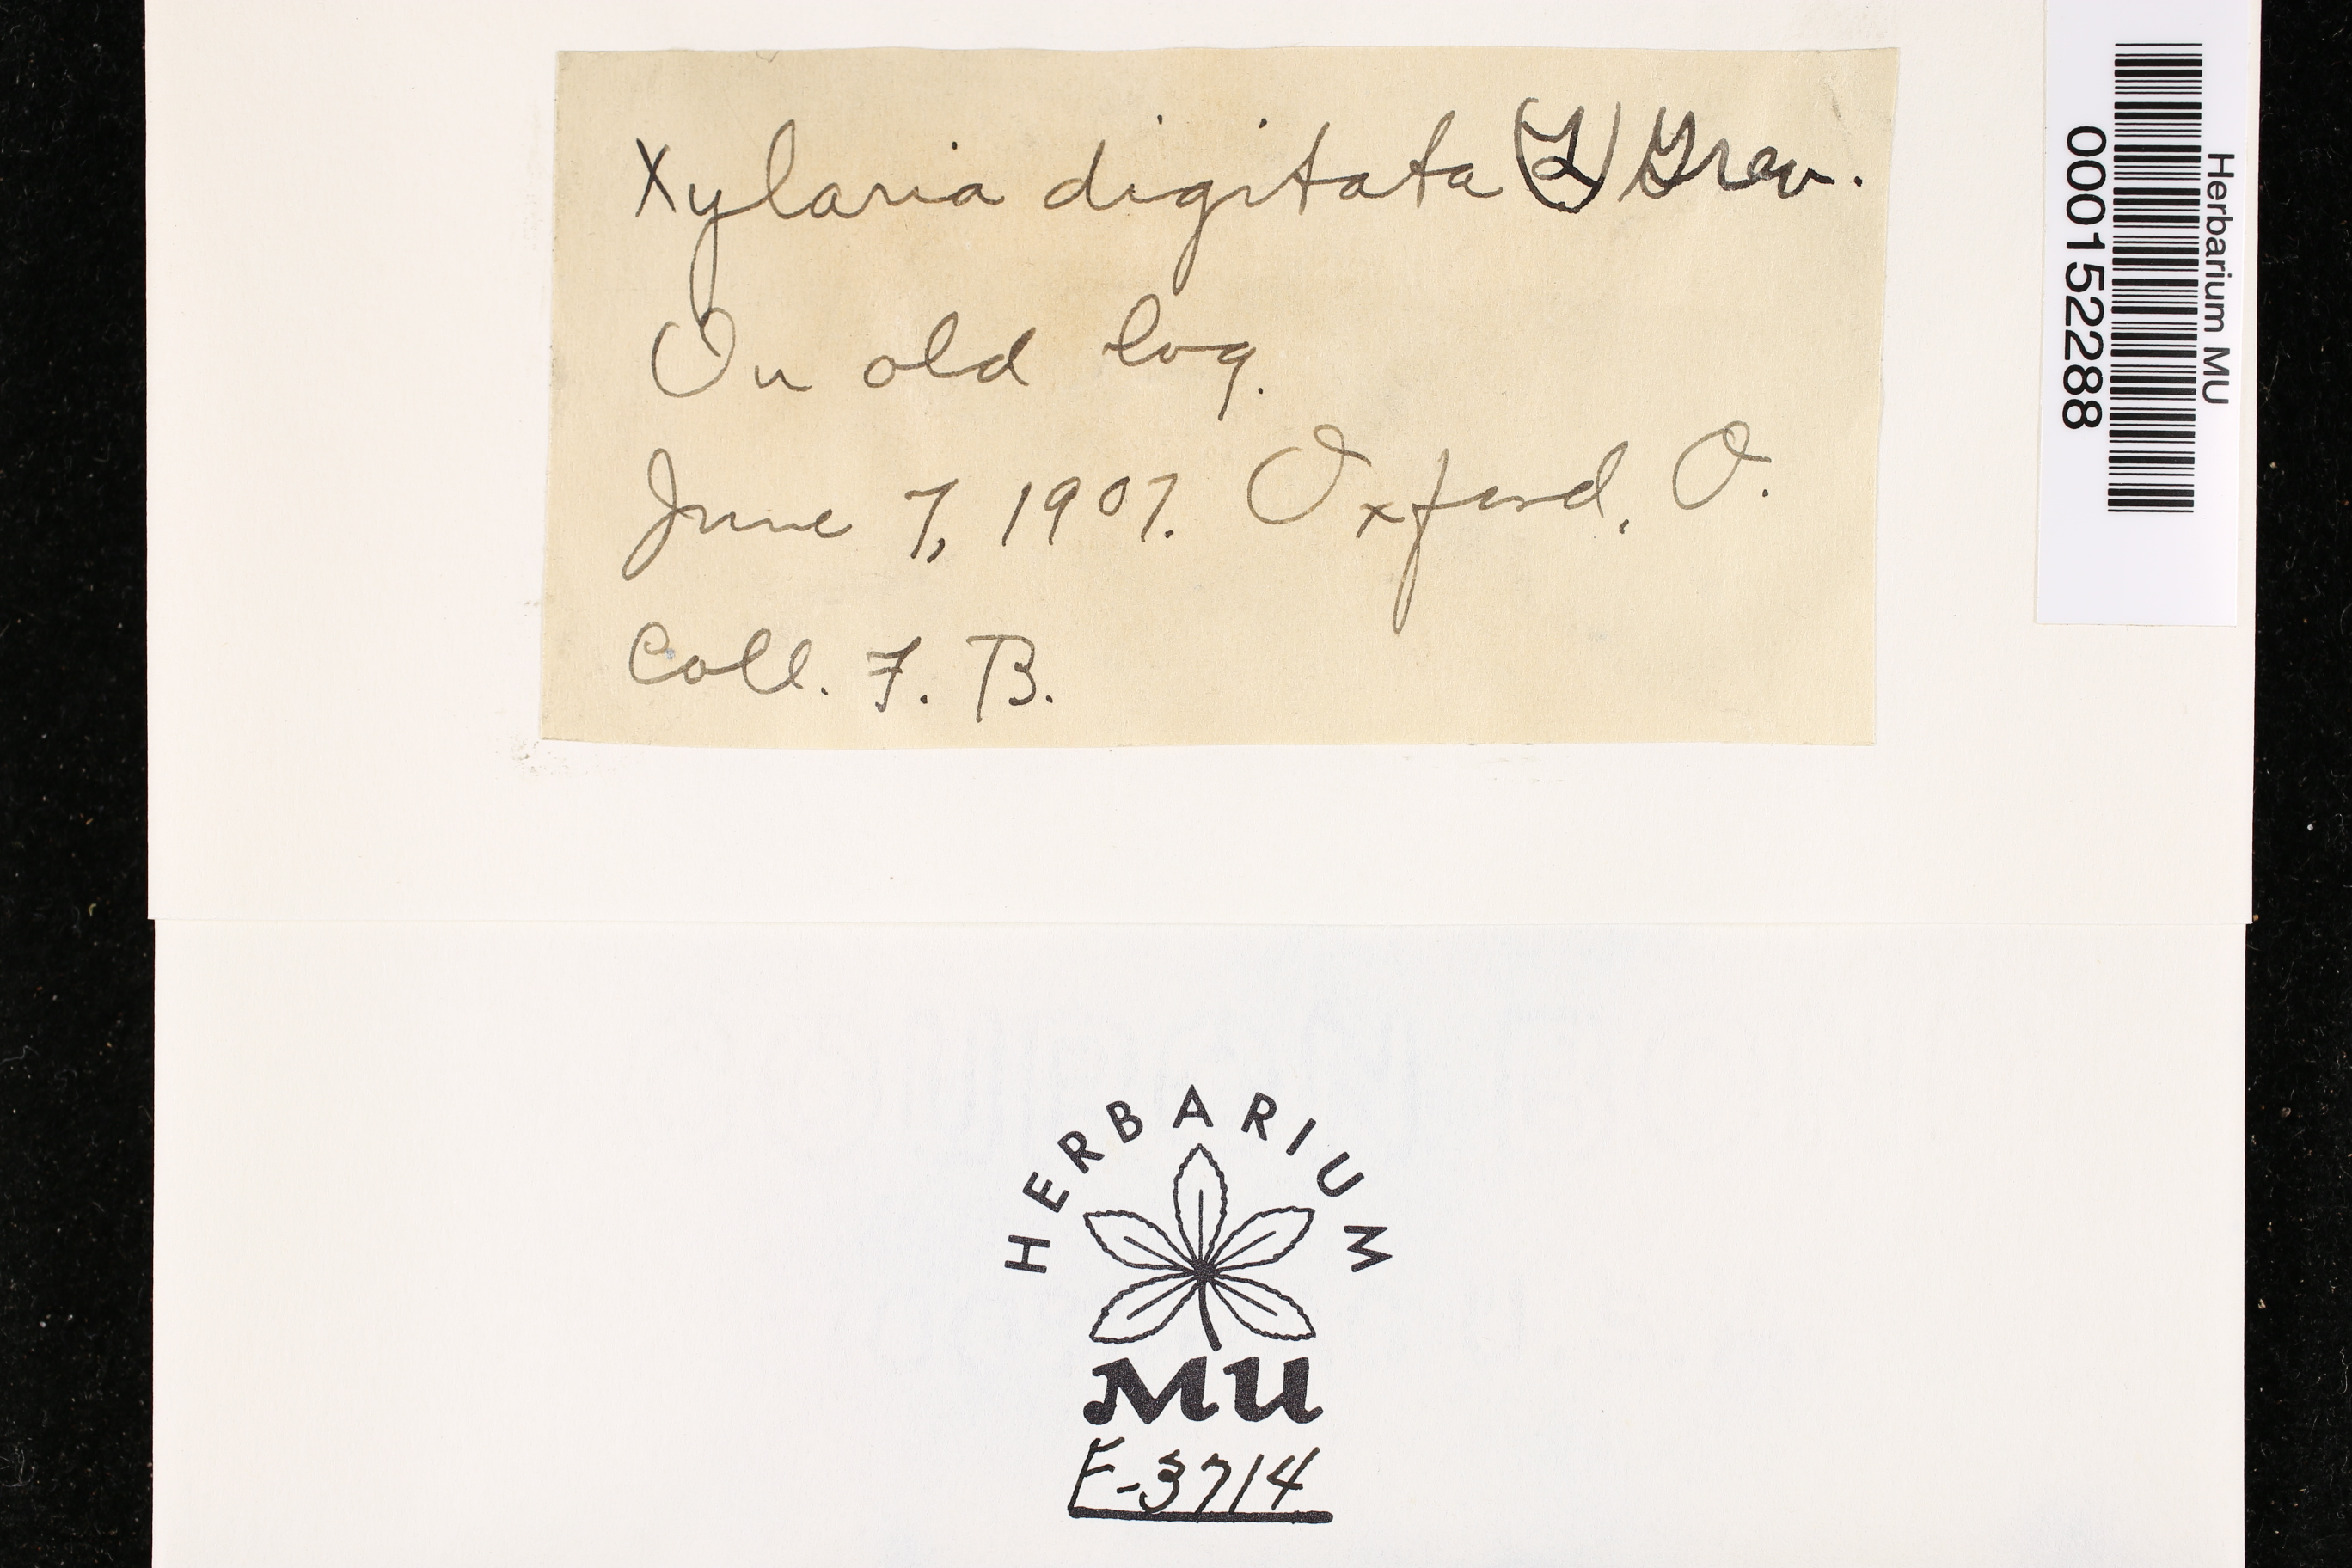 Xylaria digitata (L) Grev.
On old log.
June 7, 1907. Oxford, O.
Coll. F. B.
Herbarium MU
000152288
HERBARIUM
MU
F-3714